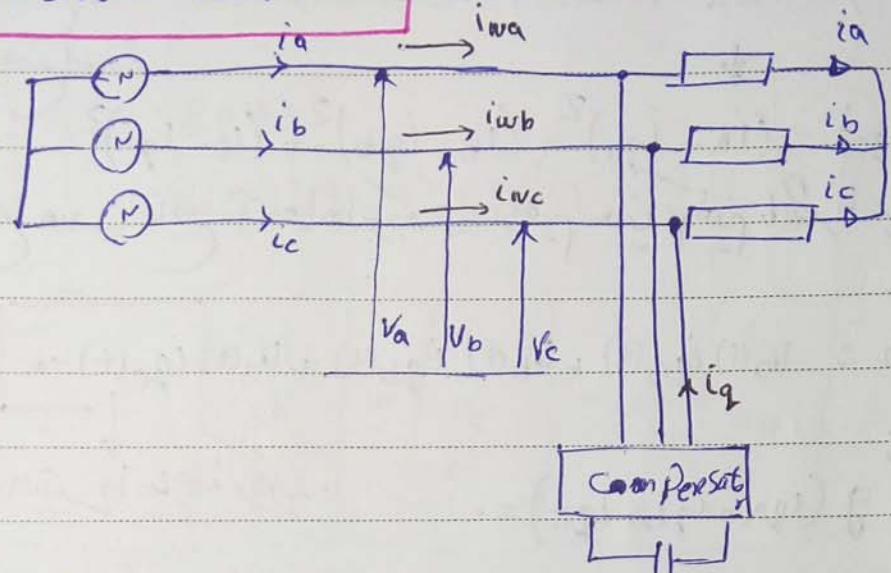 ia
iwa
ia
N
ib
iwb
ib
N
iwc
ic
N
ic
Va
Vb
Vc
iq
Compensator